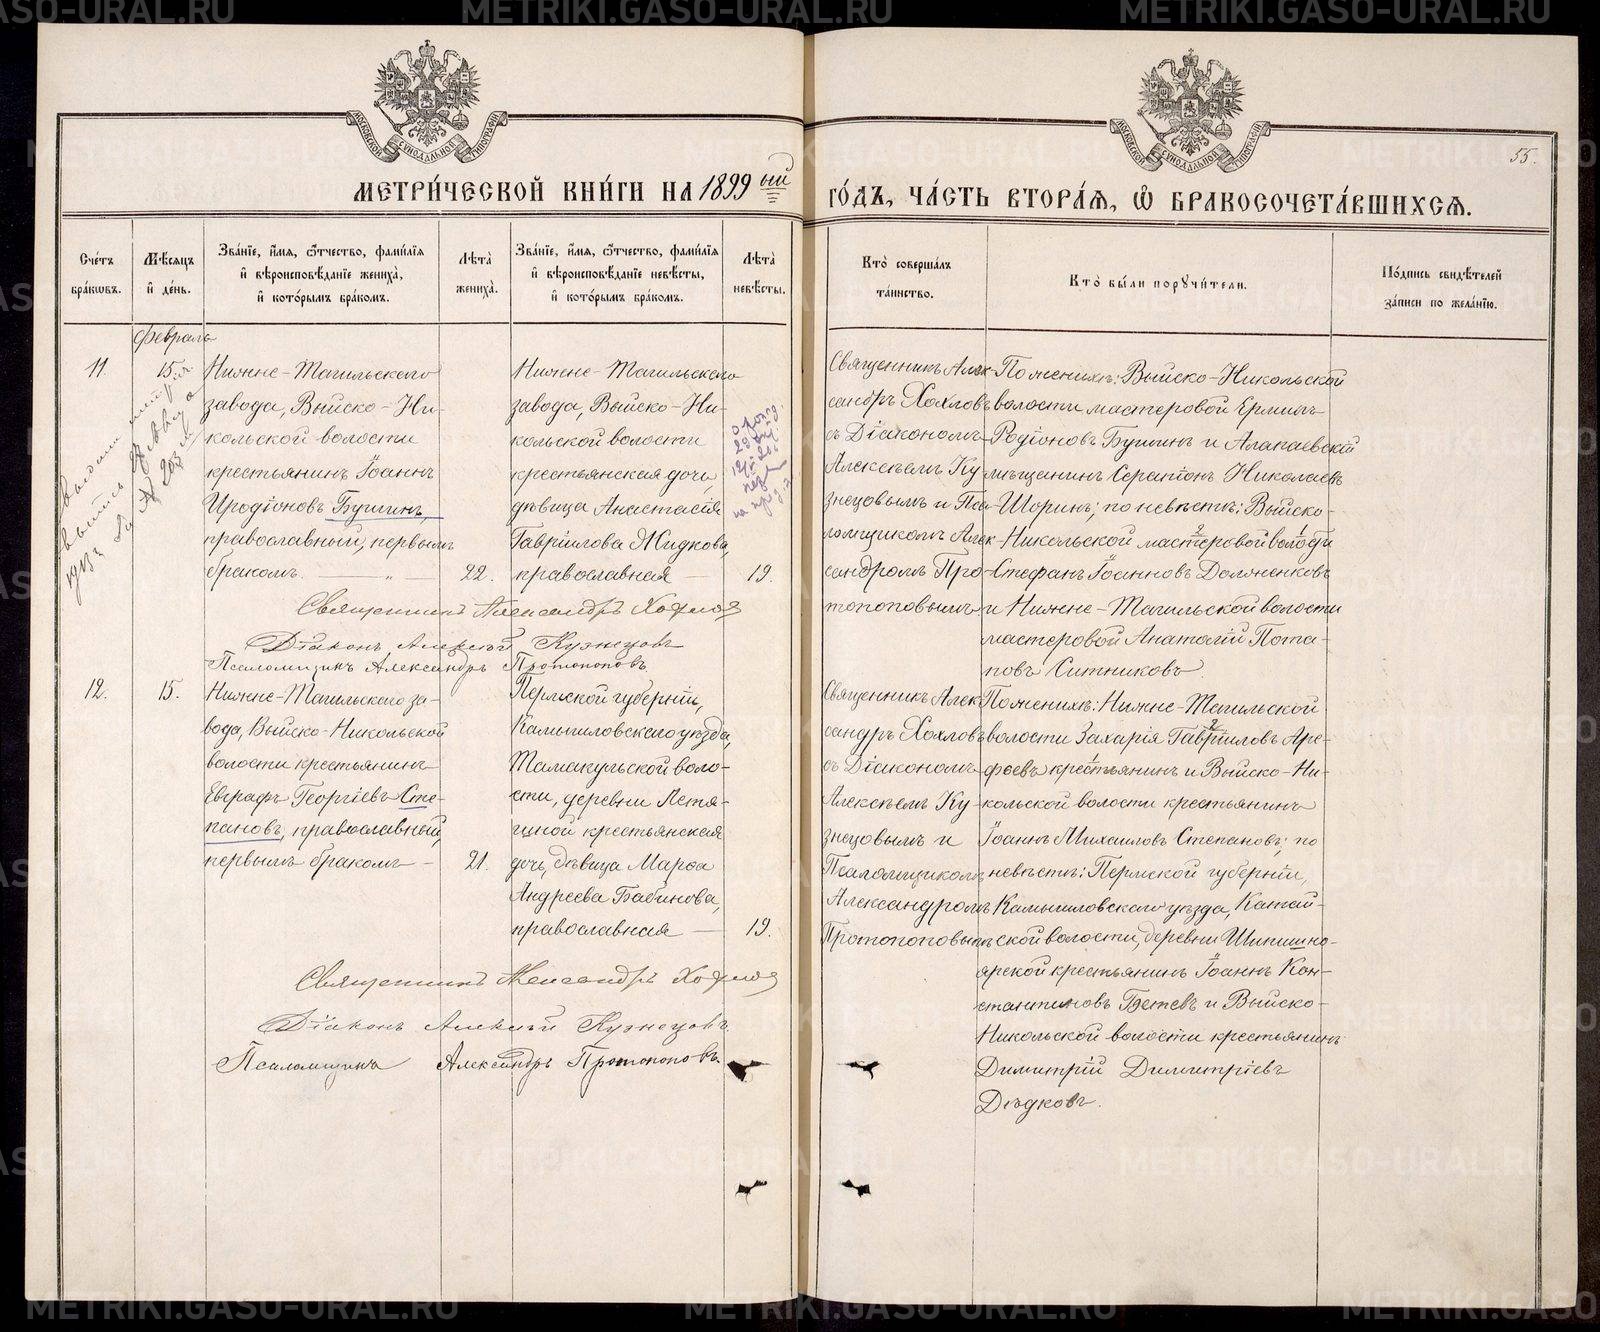 METRIKI.GASO-URAL.RU
МОСКОВСКОЙ СѴНОДАЛЬНОЙ ТИПОГРАФІИ
МОСКОВСКОЙ СѴНОДАЛЬНОЙ ТИПОГРАФІИ
55.
МЕТРИ́ЧЕСКОЙ КНИ́ГИ НА 1899 ый ГО́ДЪ, ЧА́СТЬ ВТОРА́Я, Ѡ҆ БРАКОСОЧЕТА́ВШИХСЯ.
Сче́тъ
бра́кѡвъ.
Мѣ́сяцъ
и҆ де́нь.
Зва́нїе, и҆́мя, ѻ҆́тчество, фамилїя
и҆ вѣроисповѣ́данїе жениха̀,
и҆ кото́рымъ бра́комъ.
Лѣ́та
жениха̀.
Зва́нїе, и҆́мя, ѻ҆́тчество, фамилїя
и҆ вѣроисповѣ́данїе невѣ́сты,
и҆ кото́рымъ бра́комъ.
Лѣ́та
невѣ́сты.
Кто̀ соверша́лъ
та́инство.
Кто̀ бы́ли порꙋчи́тели.
По́дпись свидѣ́телей
за́писи по жела́нїю.
Февраль
11
15.
Нижне-Тагильскаго
завода, Выйско-Ни-
кольской волости
крестьянинъ Іоаннъ
Иродіоновъ Бушинъ,
православный, первымъ
бракомъ. — „ —
22.
Нижне-Тагильскаго
завода, Выйско-Ни-
кольской волости
крестьянская дочь,
дѣвица Анастасія
Гавріилова Жидкова,
православная —
19.
Священникъ Алек-
сандръ Хохловъ
съ Діакономъ
Алексѣемъ Ку-
знецовымъ и Пса-
ломщикомъ Алек-
сандромъ Про-
топоповымъ
По женихѣ: Выйско-Никольской
волости мастеровой Ермилъ
Родіоновъ Бушинъ и Алапаевскій
мѣщанинъ Серапіонъ Николаевъ
Шоринъ; по невѣстѣ: Выйско-
Никольской мастеровой волости
2 1
Стефанъ Іоанновъ Долженковъ
и Нижне-Тагильской волости
мастеровой Анатолій Пота-
повъ Ситниковъ.
Священникъ Александръ Хохлов
Діаконъ Алексѣй Кузнецовъ
Псаломщикъ Александръ Протопоповъ.
12.
15.
Нижне-Тагильскаго за-
вода, Выйско-Никольской
волости крестьянинъ
Евграфъ Георгіевъ Сте-
пановъ, православный,
первымъ бракомъ —
21.
Пермской губерніи,
Камышловскаго уѣзда,
Тамакульской воло-
сти, деревни Летя-
гиной крестьянская
дочь, дѣвица Марѳа
Андреева Бабинова,
православная —
19.
Священникъ Алек-
сандръ Хохловъ
съ Діакономъ
Алексѣемъ Ку-
знецовымъ и
Псаломщикомъ
Александромъ
Протопоповымъ
По женихѣ: Нижне-Тагильской
волости Захарія Гавріиловъ Аре-
2 1
фьевъ крестьянинъ и Выйско-Ни-
кольской волости крестьянинъ
Іоаннъ Михаиловъ Степановъ; по
невѣстѣ: Пермской губерніи,
Камышловскаго уѣзда, Катай-
ской волости, деревни Шипишно-
ярской крестьянинъ Іоаннъ Кон-
стантиновъ Бетевъ и Выйско-
Никольской волости крестьянинъ
Димитрій Димитріевъ
Дѣдковъ.
Священникъ Александръ Хохлов
Діаконъ Алексѣй Кузнецовъ.
Псаломщикъ Александръ Протопоповъ.